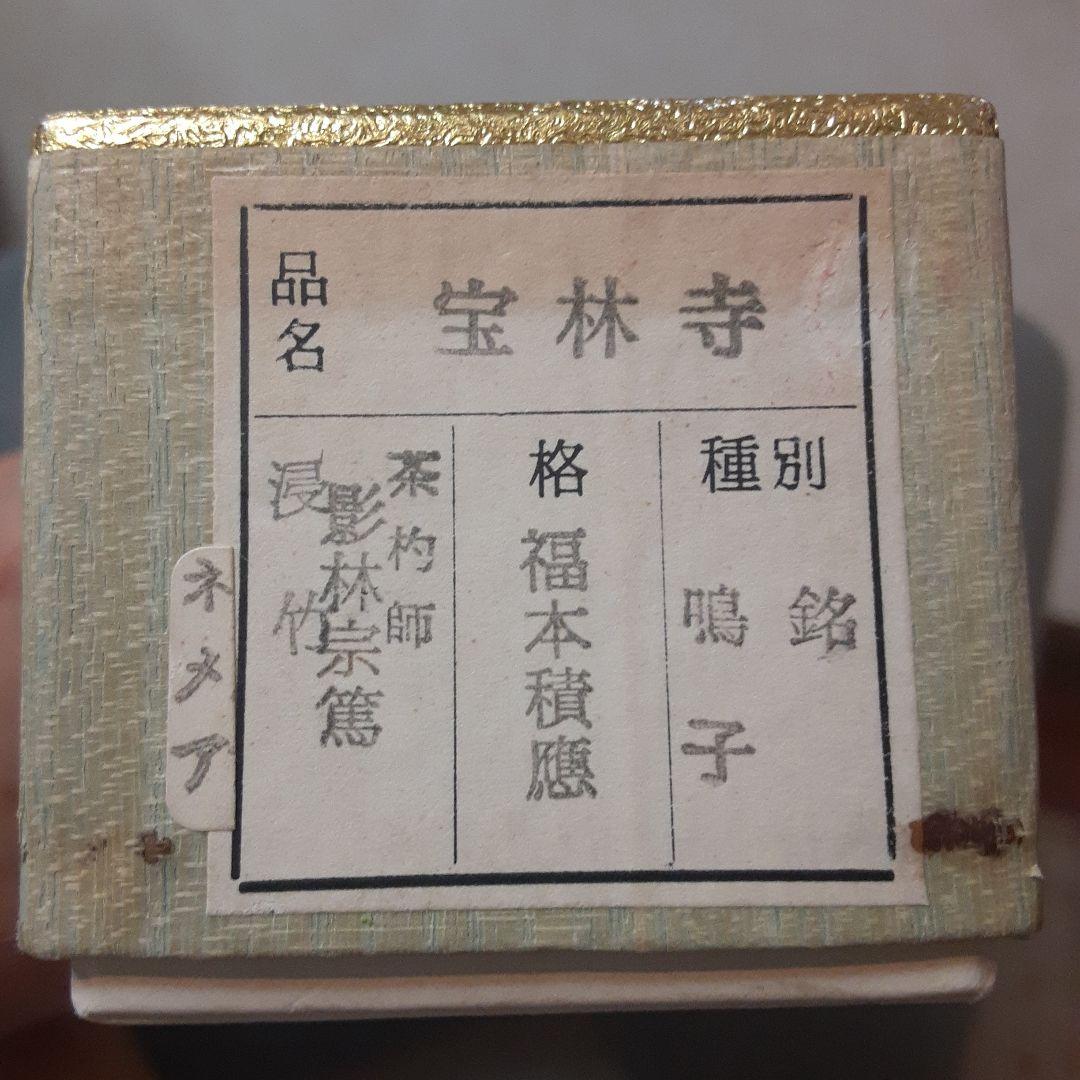 品名
宝林寺
種別
銘
鳴子
格
福本積應
茶杓師
影林宗篤
浸竹
ネメア